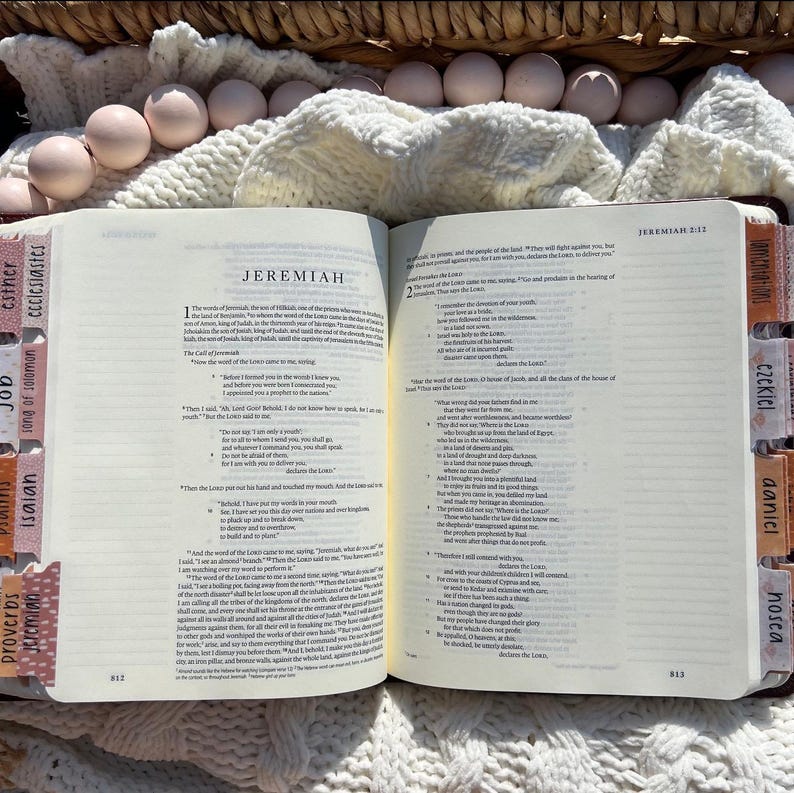 JEREMIAH
1 The words of Jeremiah, the son of Hilkiah, one of the priests who were in Anathoth in
the land of Benjamin, 2 to whom the word of the LORD came in the days of Josiah the
son of Amon, king of Judah, in the thirteenth year of his reign. 3 It came also in the days of
Jehoiakim the son of Josiah, king of Judah, and until the end of the eleventh year of Zede-
kiah, the son of Josiah, king of Judah, until the captivity of Jerusalem in the fifth month.
The Call of Jeremiah
4 Now the word of the LORD came to me, saying,
5 "Before I formed you in the womb I knew you,
and before you were born I consecrated you;
I appointed you a prophet to the nations."
6 Then I said, "Ah, Lord GOD! Behold, I do not know how to speak, for I am only a
youth." 7 But the LORD said to me,
"Do not say, 'I am only a youth';
for to all to whom I send you, you shall go,
and whatever I command you, you shall speak.
8 Do not be afraid of them,
for I am with you to deliver you,
declares the LORD."
9 Then the LORD put out his hand and touched my mouth. And the LORD said to me,
"Behold, I have put my words in your mouth.
10 See, I have set you this day over nations and over kingdoms,
to pluck up and to break down,
to destroy and to overthrow,
to build and to plant."
11 And the word of the LORD came to me, saying, "Jeremiah, what do you see?" And
I said, "I see an almond 1 branch." 12 Then the LORD said to me, "You have seen well, for
I am watching over my word to perform it."
13 The word of the LORD came to me a second time, saying, "What do you see?" And
I said, "I see a boiling pot, facing away from the north." 14 Then the LORD said to me, "Out
of the north disaster 2 shall be let loose upon all the inhabitants of the land. 15 For behold,
I am calling all the tribes of the kingdoms of the north, declares the LORD, and they
shall come, and every one shall set his throne at the entrance of the gates of Jerusalem,
against all its walls all around and against all the cities of Judah. 16 And I will declare my
judgments against them, for all their evil in forsaking me. They have made offerings
to other gods and worshiped the works of their own hands. 17 But you, dress yourself
for work; 3 arise, and say to them everything that I command you. Do not be dismayed
by them, lest I dismay you before them. 18 And I, behold, I make you this day a fortified
city, an iron pillar, and bronze walls, against the whole land, against the kings of Judah,
1 Almond sounds like the Hebrew for watching (compare verse 12) 2 The Hebrew word can mean evil, harm, or disaster, depending
on the context; so throughout Jeremiah 3 Hebrew gird up your loins
812
JEREMIAH 2:12
its officials, its priests, and the people of the land. 19 They will fight against you, but
they shall not prevail against you, for I am with you, declares the LORD, to deliver you."
Israel Forsakes the LORD
2 The word of the LORD came to me, saying, 2 "Go and proclaim in the hearing of
Jerusalem, Thus says the LORD,
"I remember the devotion of your youth,
your love as a bride,
how you followed me in the wilderness,
in a land not sown.
3 Israel was holy to the LORD,
the firstfruits of his harvest.
All who ate of it incurred guilt;
disaster came upon them,
declares the LORD."
4 Hear the word of the LORD, O house of Jacob, and all the clans of the house of
Israel. 5 Thus says the LORD:
"What wrong did your fathers find in me
that they went far from me,
and went after worthlessness, and became worthless?
6 They did not say, 'Where is the LORD
who brought us up from the land of Egypt,
who led us in the wilderness,
in a land of deserts and pits,
in a land of drought and deep darkness,
in a land that none passes through,
where no man dwells?'
7 And I brought you into a plentiful land
to enjoy its fruits and its good things.
But when you came in, you defiled my land
and made my heritage an abomination.
8 The priests did not say, 'Where is the LORD?'
Those who handle the law did not know me;
the shepherds 1 transgressed against me;
the prophets prophesied by Baal
and went after things that do not profit.
9 "Therefore I still contend with you,
declares the LORD,
and with your children's children I will contend.
10 For cross to the coasts of Cyprus and see,
or send to Kedar and examine with care;
see if there has been such a thing.
11 Has a nation changed its gods,
even though they are no gods?
But my people have changed their glory
for that which does not profit.
12 Be appalled, O heavens, at this;
be shocked, be utterly desolate,
declares the LORD,
813
esther
ecclesiastes
job
song of solomon
psalms
isaiah
proverbs
jeremiah
lamentations
ezekiel
daniel
hosea